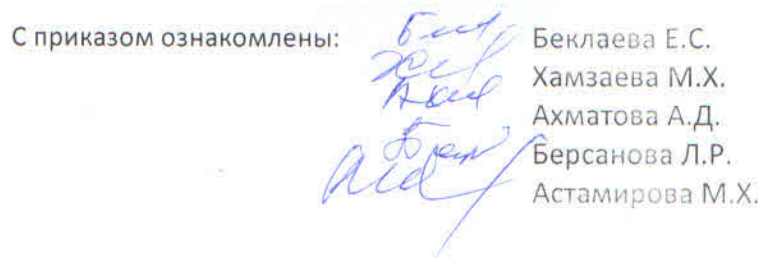 С приказом ознакомлены: Беклаева Е.С.
Хамзаева М.Х.
Ахматова А.Д.
Берсанова Л.Р.
Астамирова М.Х.